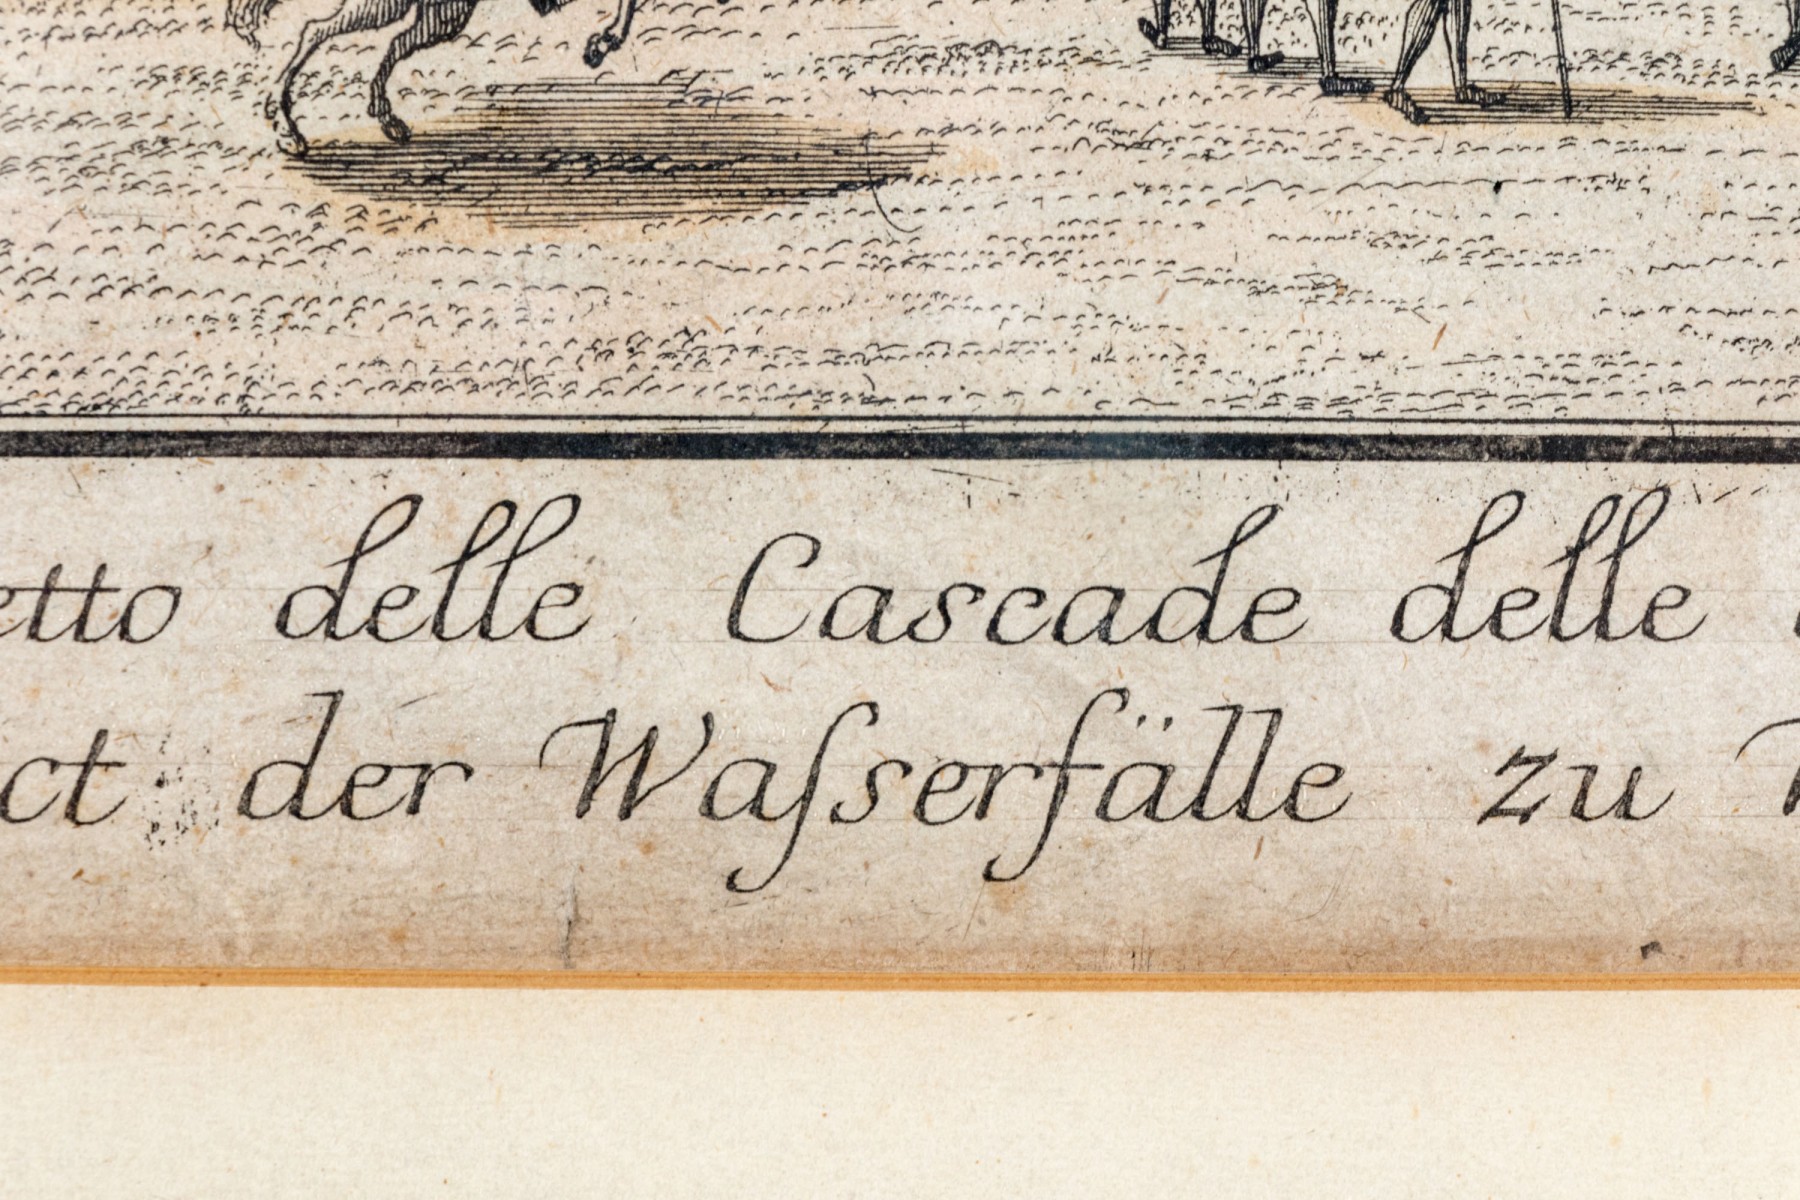 etto delle Cascade delle
ct der Waſserfälle zu